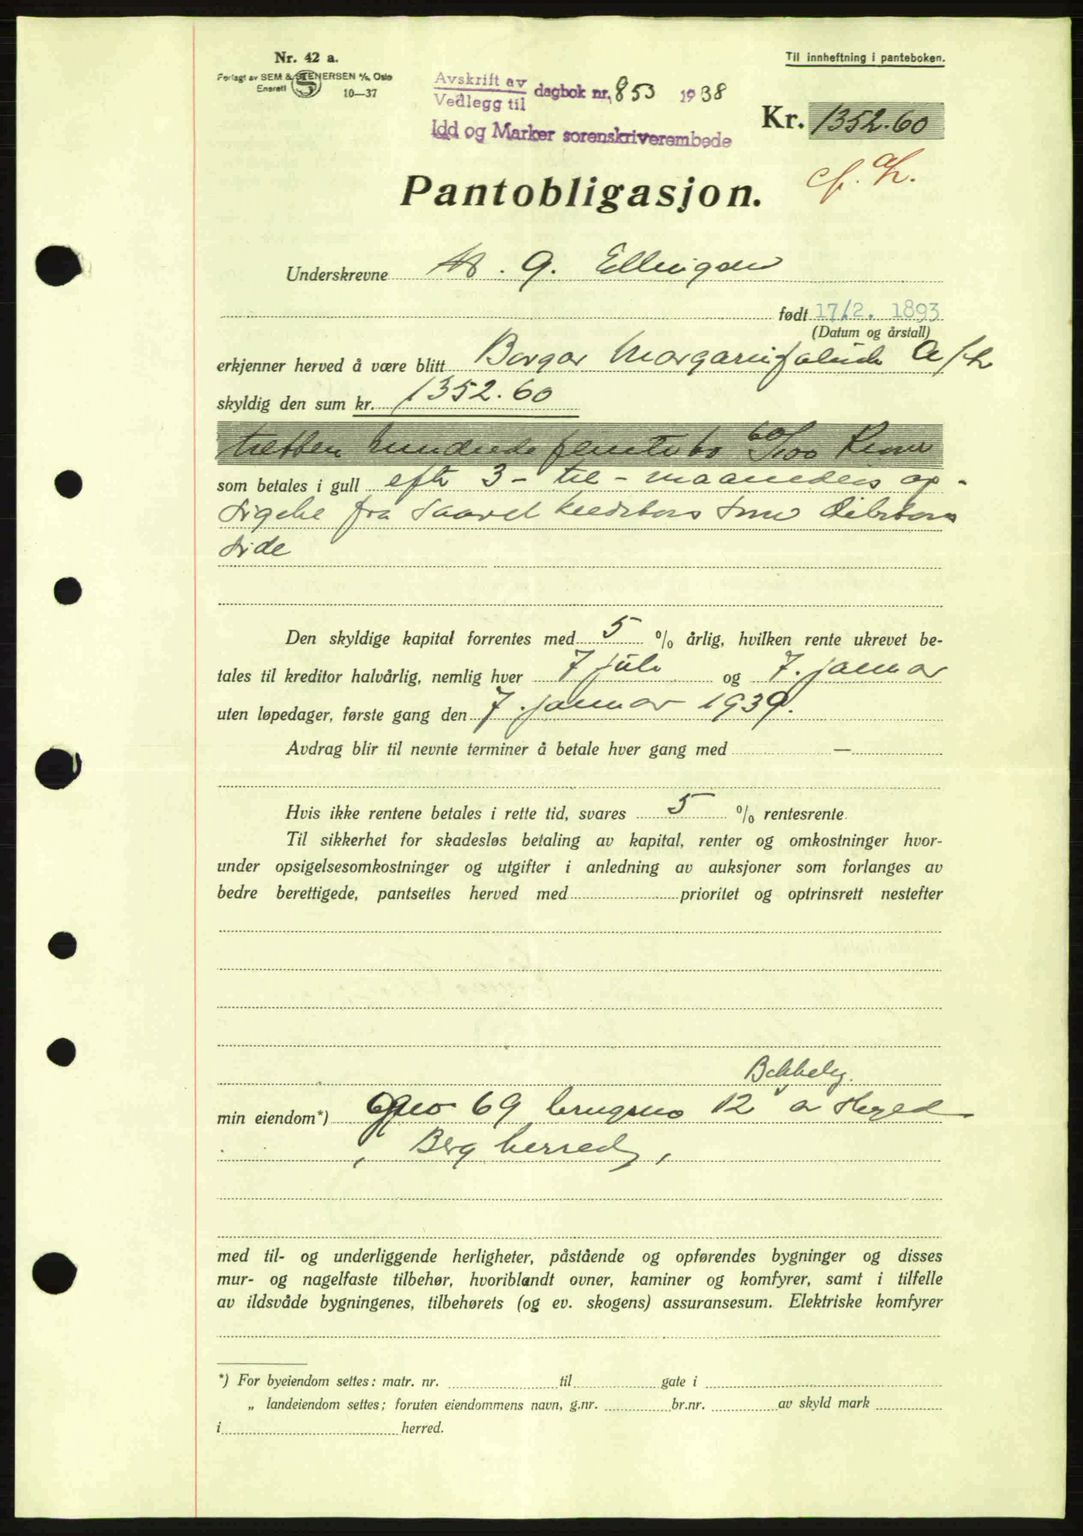 Nr. 42 a.
Forlagt av SEM & STENERSEN A/S, Oslo
Enerett 10—37
Til innheftning i panteboken.
Avskrift av
Vedlegg til dagbok nr. 853 1938
Idd og Marker sorenskriverembede
Kr. 1352.60
Pantobligasjon.
Underskrevne G. Ellingsen
født 17/2. 1893
(Datum og årstall)
erkjenner herved å være blitt Borgar Margarinfabrik A/S
skyldig den sum kr. 1352.60
tretten hundrede femti to 60/100 Kroner
som betales i gull efter 3 - tre - maaneders op-
sigelse fra saavel kreditors som debitors
side
Den skyldige kapital forrentes med 5 % årlig, hvilken rente ukrevet be-
tales til kreditor halvårlig, nemlig hver 7 juli og 7. januar
uten løpedager, første gang den 7. januar 1939.
Avdrag blir til nevnte terminer å betale hver gang med —
Hvis ikke rentene betales i rette tid, svares 5 % rentesrente.
Til sikkerhet for skadesløs betaling av kapital, renter og omkostninger hvor-
under opsigelsesomkostninger og utgifter i anledning av auksjoner som forlanges av
bedre berettigede, pantsettes herved med prioritet og optrinsrett nestefter
min eiendom*) gno 69 brugsno 12
i Berg herred,
med til- og underliggende herligheter, påstående og opførendes bygninger og disses
mur- og nagelfaste tilbehør, hvoriblandt ovner, kaminer og komfyrer, samt i tilfelle
av ildsvåde bygningenes, tilbehørets (og ev. skogens) assuransesum. Elektriske komfyrer
*) For byeiendom settes: matr. nr. til gate i
„ landeiendom settes; foruten eiendommens navn, g.nr. br.nr. av skyld mark
i herred.